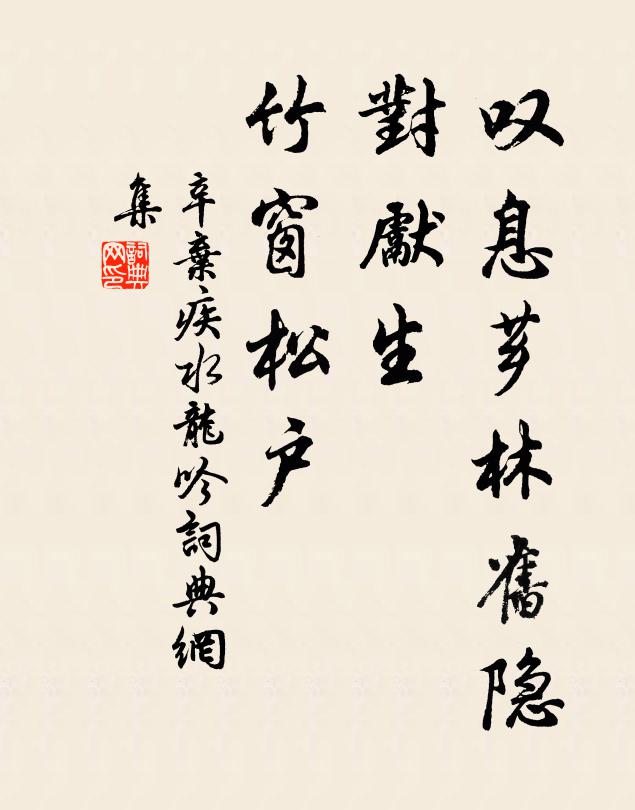 叹息芗林舊隐
對獻生
竹窗松户
辛棄疾水龍吟詞典網
集
詞典
网印